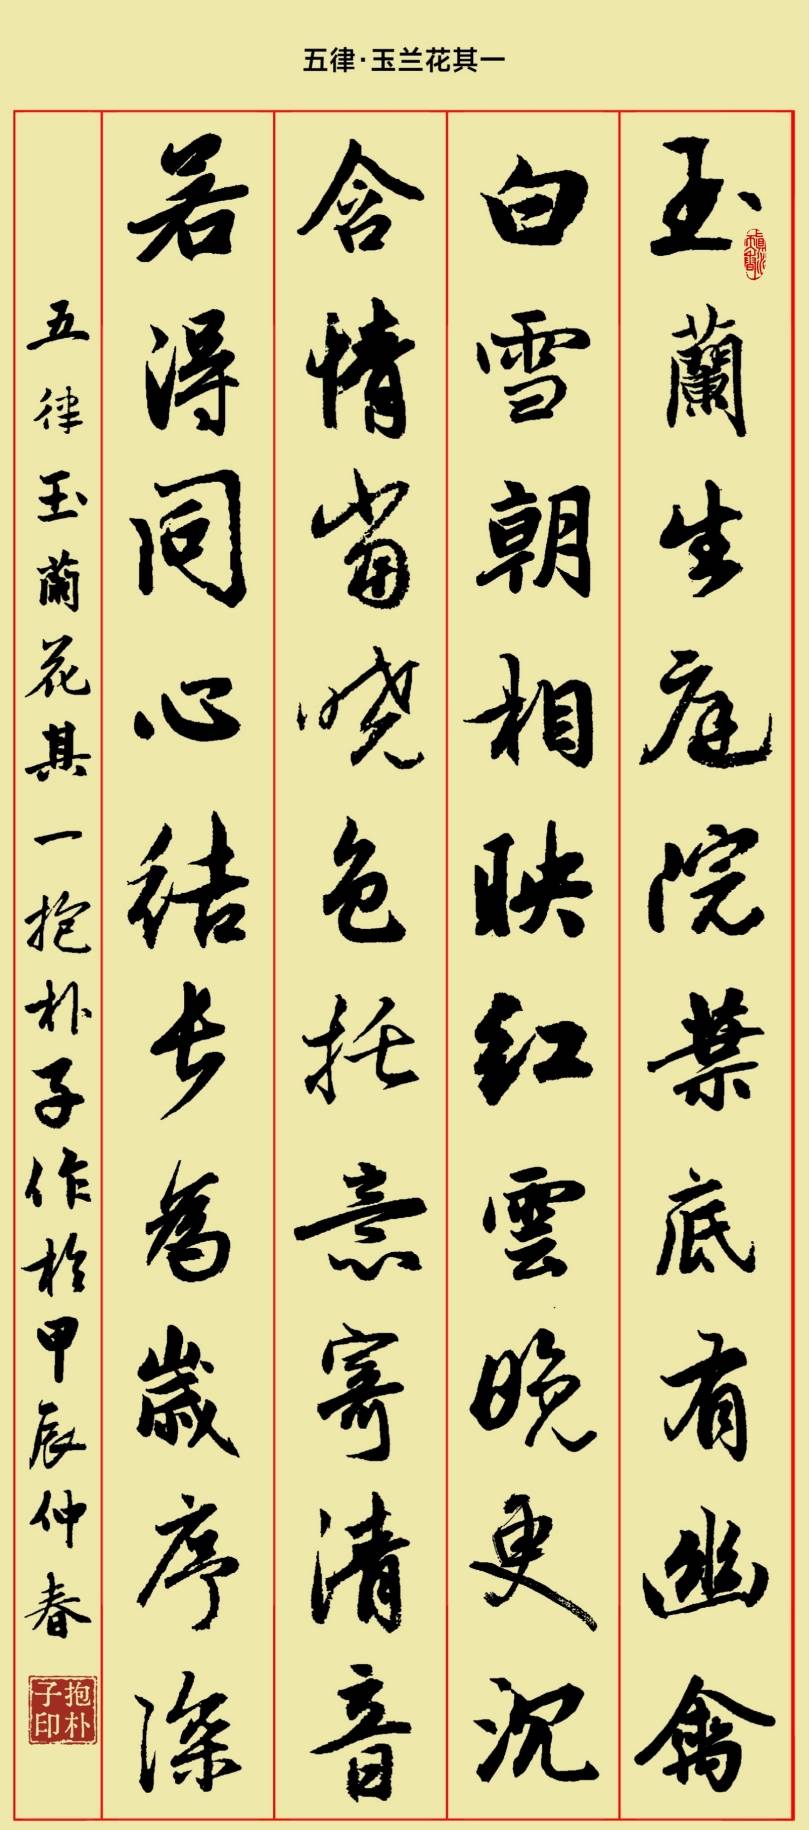 五律·玉兰花其一
玉蘭生庭院葉底有幽禽
白雪朝相映紅雲晚更沉
含情當曉色托意寄清音
若得同心結長為歲序深
五律玉蘭花其一抱朴子作於甲辰仲春
抱朴子印